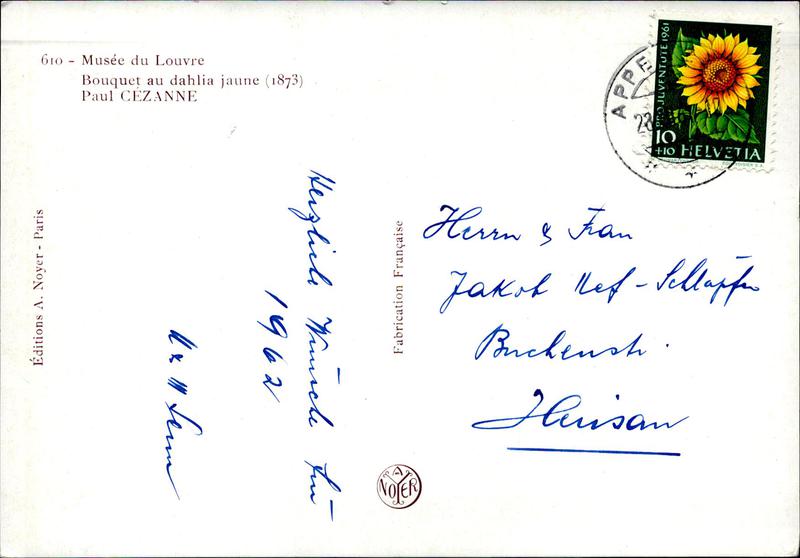 610 - Musée du Louvre
Bouquet au dahlia jaune (1873)
Paul CÉZANNE
Éditions A. Noyer - Paris
Herzliche Wünsche für
1962
Fabrication Française
A
NOYER
APPE
28
PRO JUVENTUTE 1961
10
+10 HELVETIA
Herrn & Frau
Jakob Nef - Schläpfer
Buchenstr.
Herisau